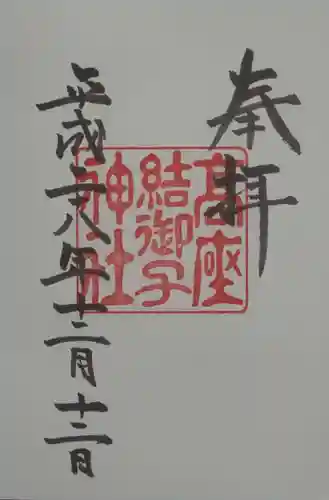 奉拝
高座
結御子
神社
平成二八年十二月十二日